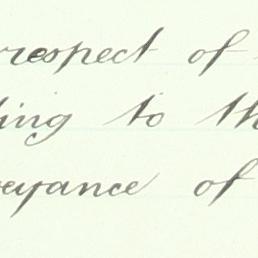 respect of
ding to th
eyance of